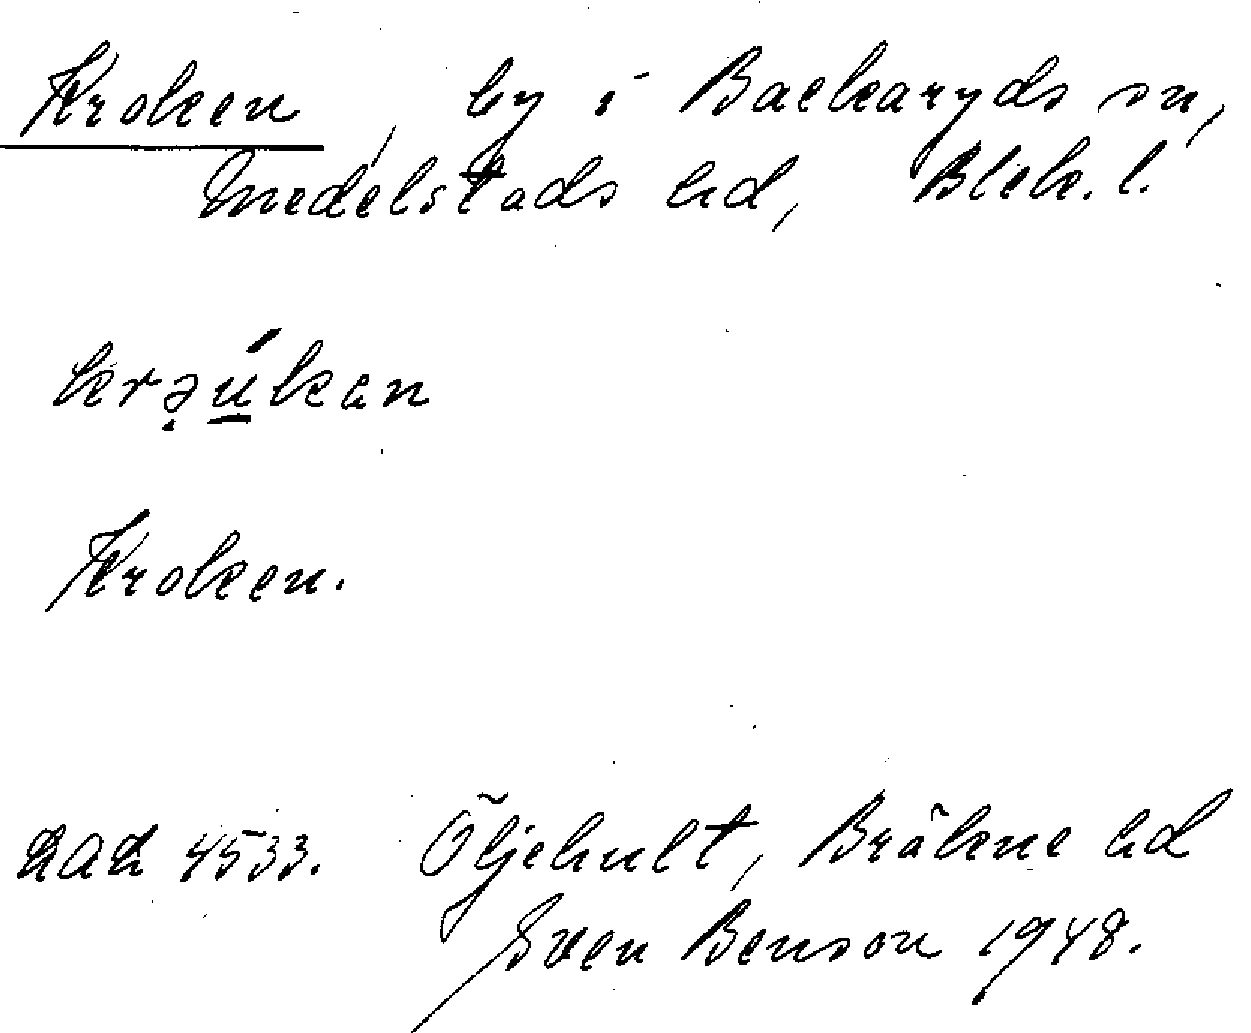 Kroken, by i Backaryds sn,
Medelstads hd, Blek. l.
krə̣ú̲kan
Kroken.
LAL 4533. Öljehult, Bräkne hd
Sven Benson 1948.